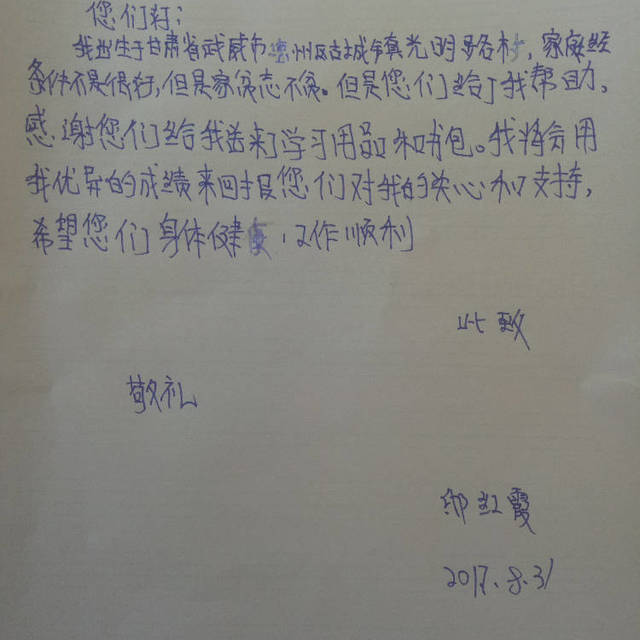 您们好:
我出生于甘肃省武威市凉州区古城镇光明路村，家庭经
条件不是很好,但是家贫志不贫。但是您们给了我帮助,
感谢您们给我带来了学习用品和书包。我将会用
我优异的成绩来回报您们对我的关心和支持,
希望您们身体健康,工作顺利
此致
敬礼
邬红霞
2017.8.31